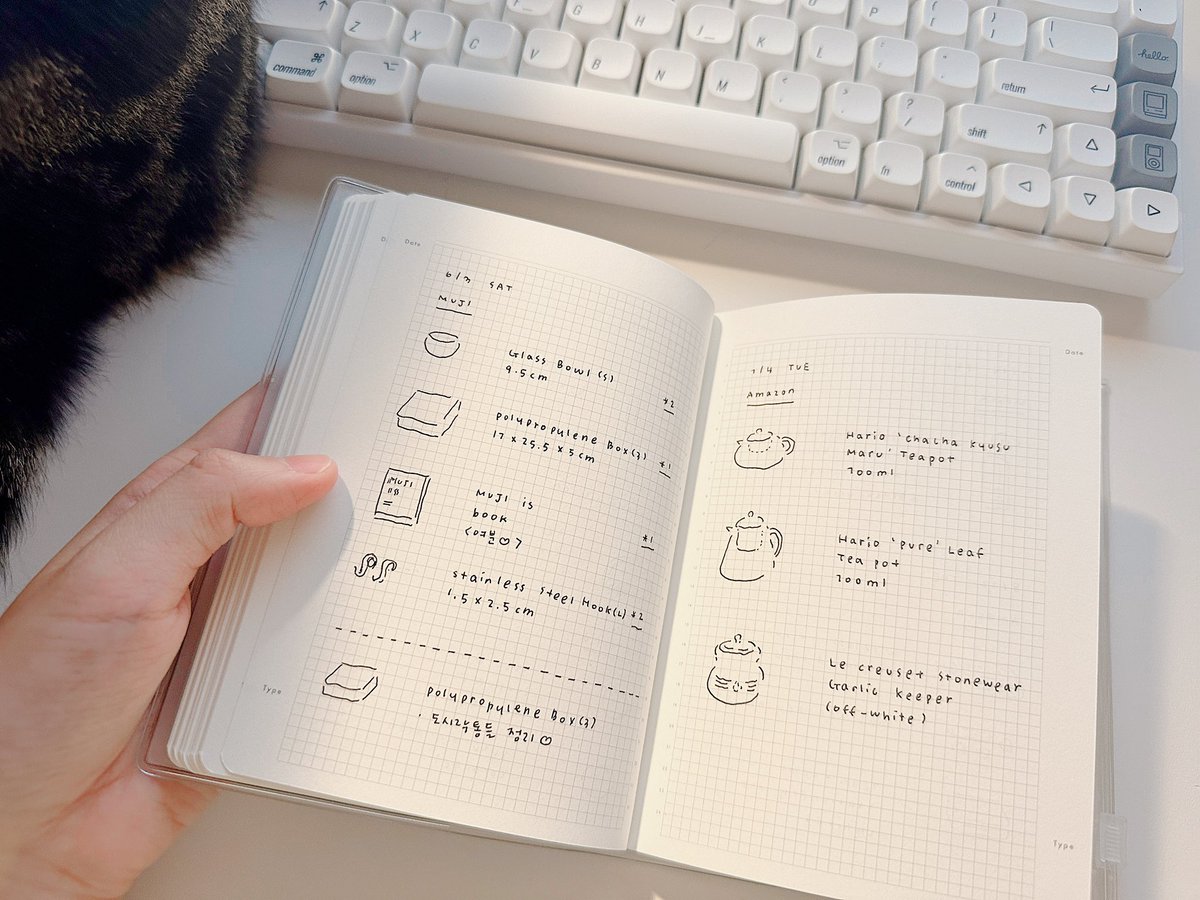 Z
X
C
V
B
G
H
J
N
K
M
L
P
command
option
return
shift
option
fn
control
hello.
Date
6/3 SAT
MUJI
Glass Bowl (S)
9.5cm
*2
Polypropylene Box(3)
17 x 25.5 x 5 cm
*1
MUJI
MUJI is
book
<여분♡>
*1
Stainless Steel Hook(L) *2
1.5 x 2.5 cm
Polypropylene Box(3)
· 도시락통들 정리♡
Type
Date
7/4 TUE
Amazon
Hario 'chacha kyusu
Maru' Teapot
700ml
Hario 'pure' Leaf
Tea pot
700ml
Le creuset Stonewear
Garlic keeper
(off-white)
Type